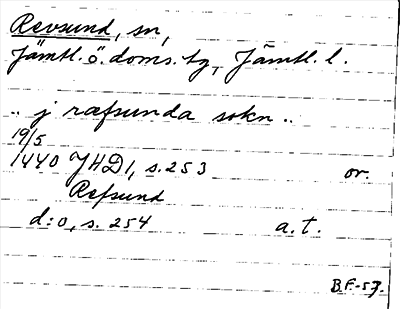 Revsund, sn,
Jämtl. ö. doms. tg, Jämtl. l.
.. j ræfsunda sokn ..
19/5
1440 JHD 1, s. 253 or.
Refsund
d:o, s. 254 a.t.
B.F.-57.